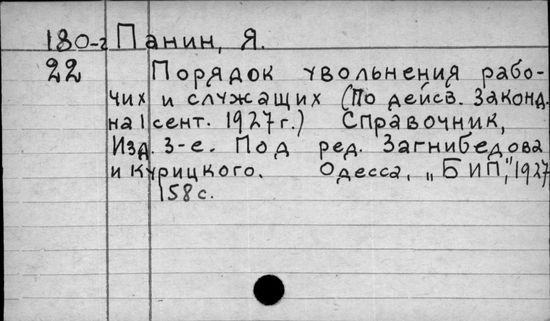 180-2 Панин, Я.
22 Порядок увольнения рабо-
чих и служащих (По дейсв. Законд.
на 1 сент. 1927 г.) Справочник,
Изд. 3-е. Под ред. Загнибедова
и Курицкого. Одесса, „БИП", 1927
158 с.